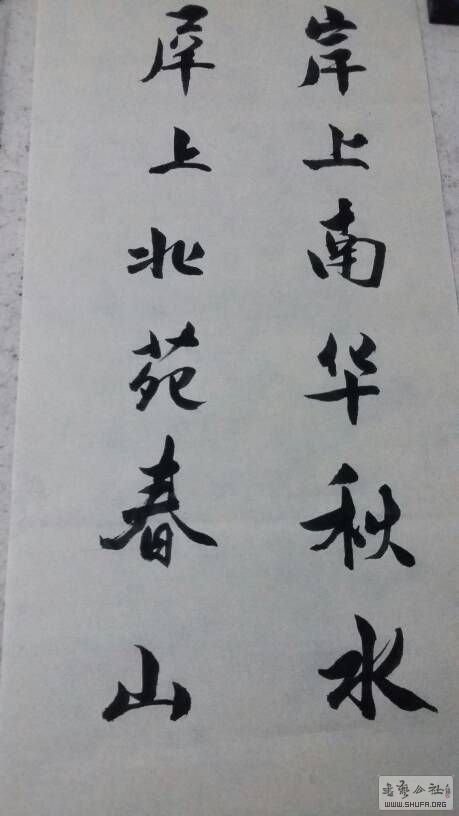 岸上南华秋水
屏上北苑春山
書藝公社
WWW.SHUFA.ORG